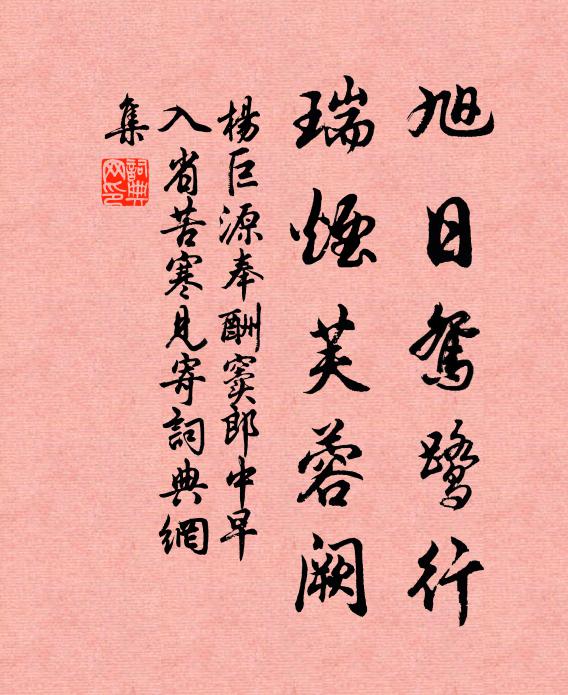 旭日鴛鷺行
瑞煙芙蓉闕
楊巨源奉酬竇郎中早
入省苦寒見寄詞典網
集
詞典
网印